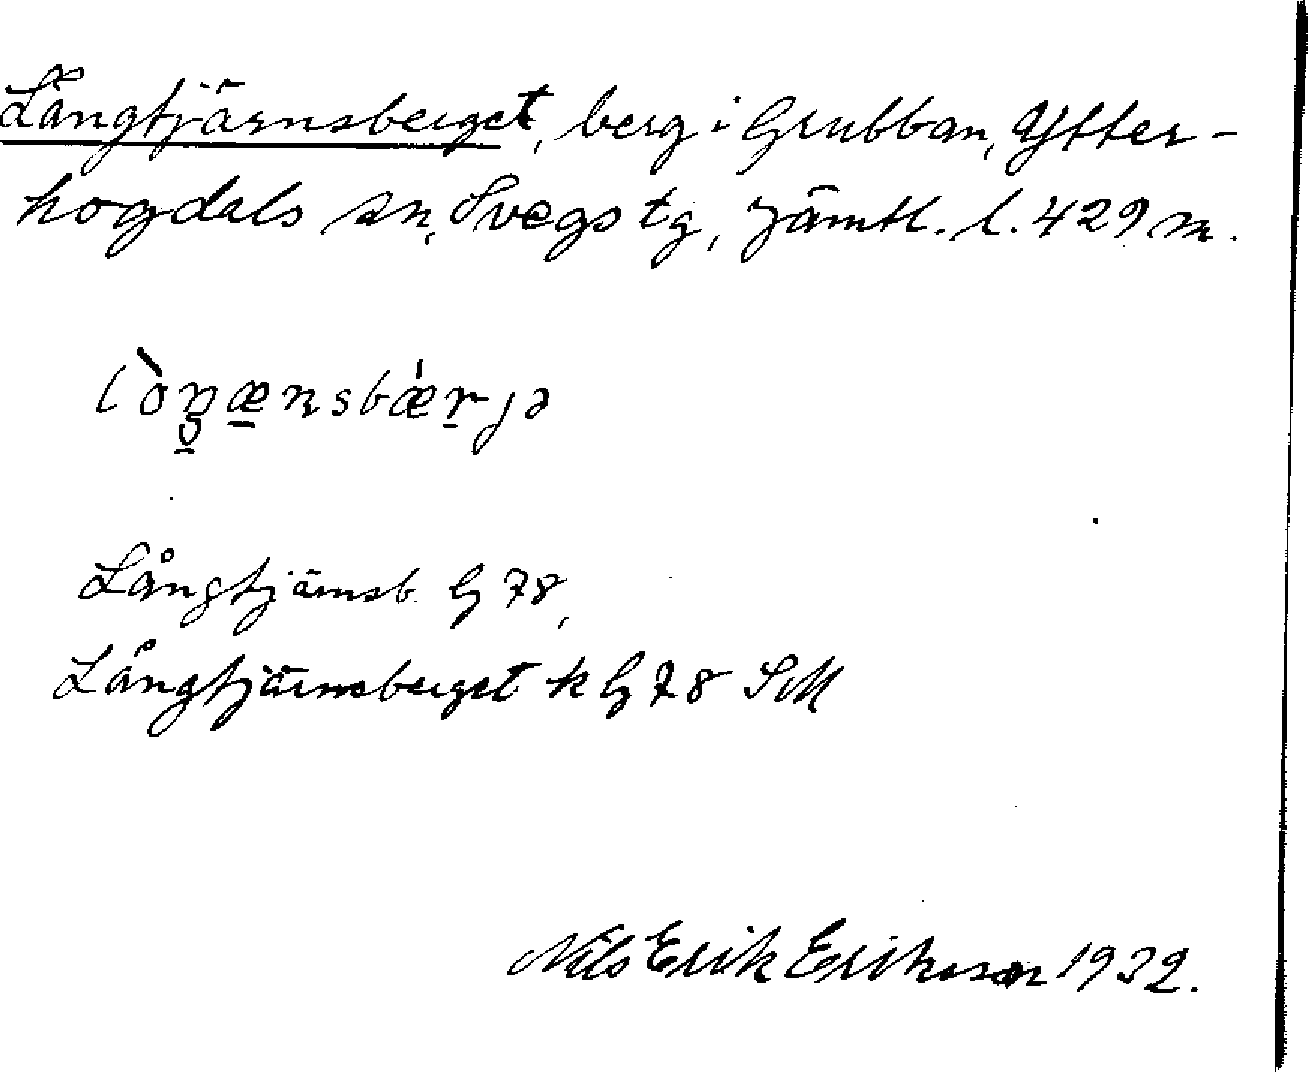 Långtjärnsberget, berg i Grubban, Ytter-
hogdals sn, Svegs tg, Jämtl. l. 429 m.
Långtjärnsb. G 78,
Långtjärnsberget k G 78 SM
Nils Erik Eriksson 1932.